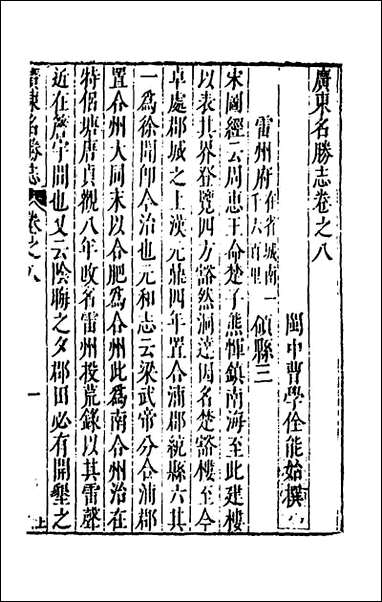 廣東名勝志卷之八
閩中曹學佺能始撰
雷州府在省城南一千六百里 領縣三
宋圖經云周惠王命楚子熊惲鎮南海至此建樓
以表其界登覽四方豁然洞達因名楚豁樓至今
卓處郡城之上漢元鼎四年置合浦郡統縣六其
一為徐聞即今治也元和志云梁武帝分合浦郡
置合州大同末以合肥為合州此為南合州治在
特侶塘唐貞觀八年改名雷州投荒錄以其雷聲
近在簷宇間也又云陰晦之夕郡田必有開墾之
廣東名勝志 卷之八 一 上